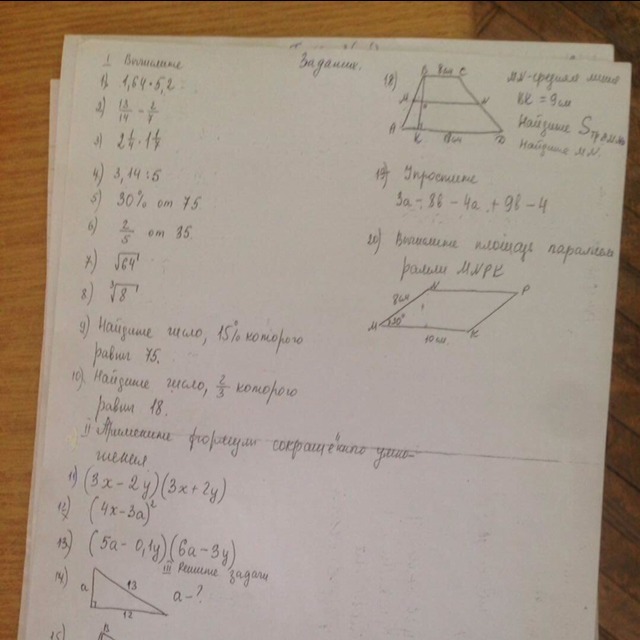 Задания.
I Вычислите
1) 1,64 · 5,2
2) 13/14 - 2/7
3) 2 1/4 · 1 1/7
4) 3,14 : 5
5) 30% от 75
6) 2/5 от 35
7) √64
8) ∛8
9) Найдите число, 15% которого
равны 75.
10) Найдите число, 2/3 которого
равны 18.
II Примените формулы сокращённого умно-
жения
11) (3x - 2y)(3x + 2y)
12) (4x - 3a)²
13) (5a - 0,1y)(6a - 3y)
III Решите задачи
14) a 13 12 a - ?
15)
18) B 8см C
M N
A K D
MN - средняя линия
BK = 9см
Найдите S
Найдите MN.
19) Упростите
3a - 8b - 4a + 9b - 4
20) Вычислите площадь паралле
рамма MNPK
N P
8см
M 30° K
10см